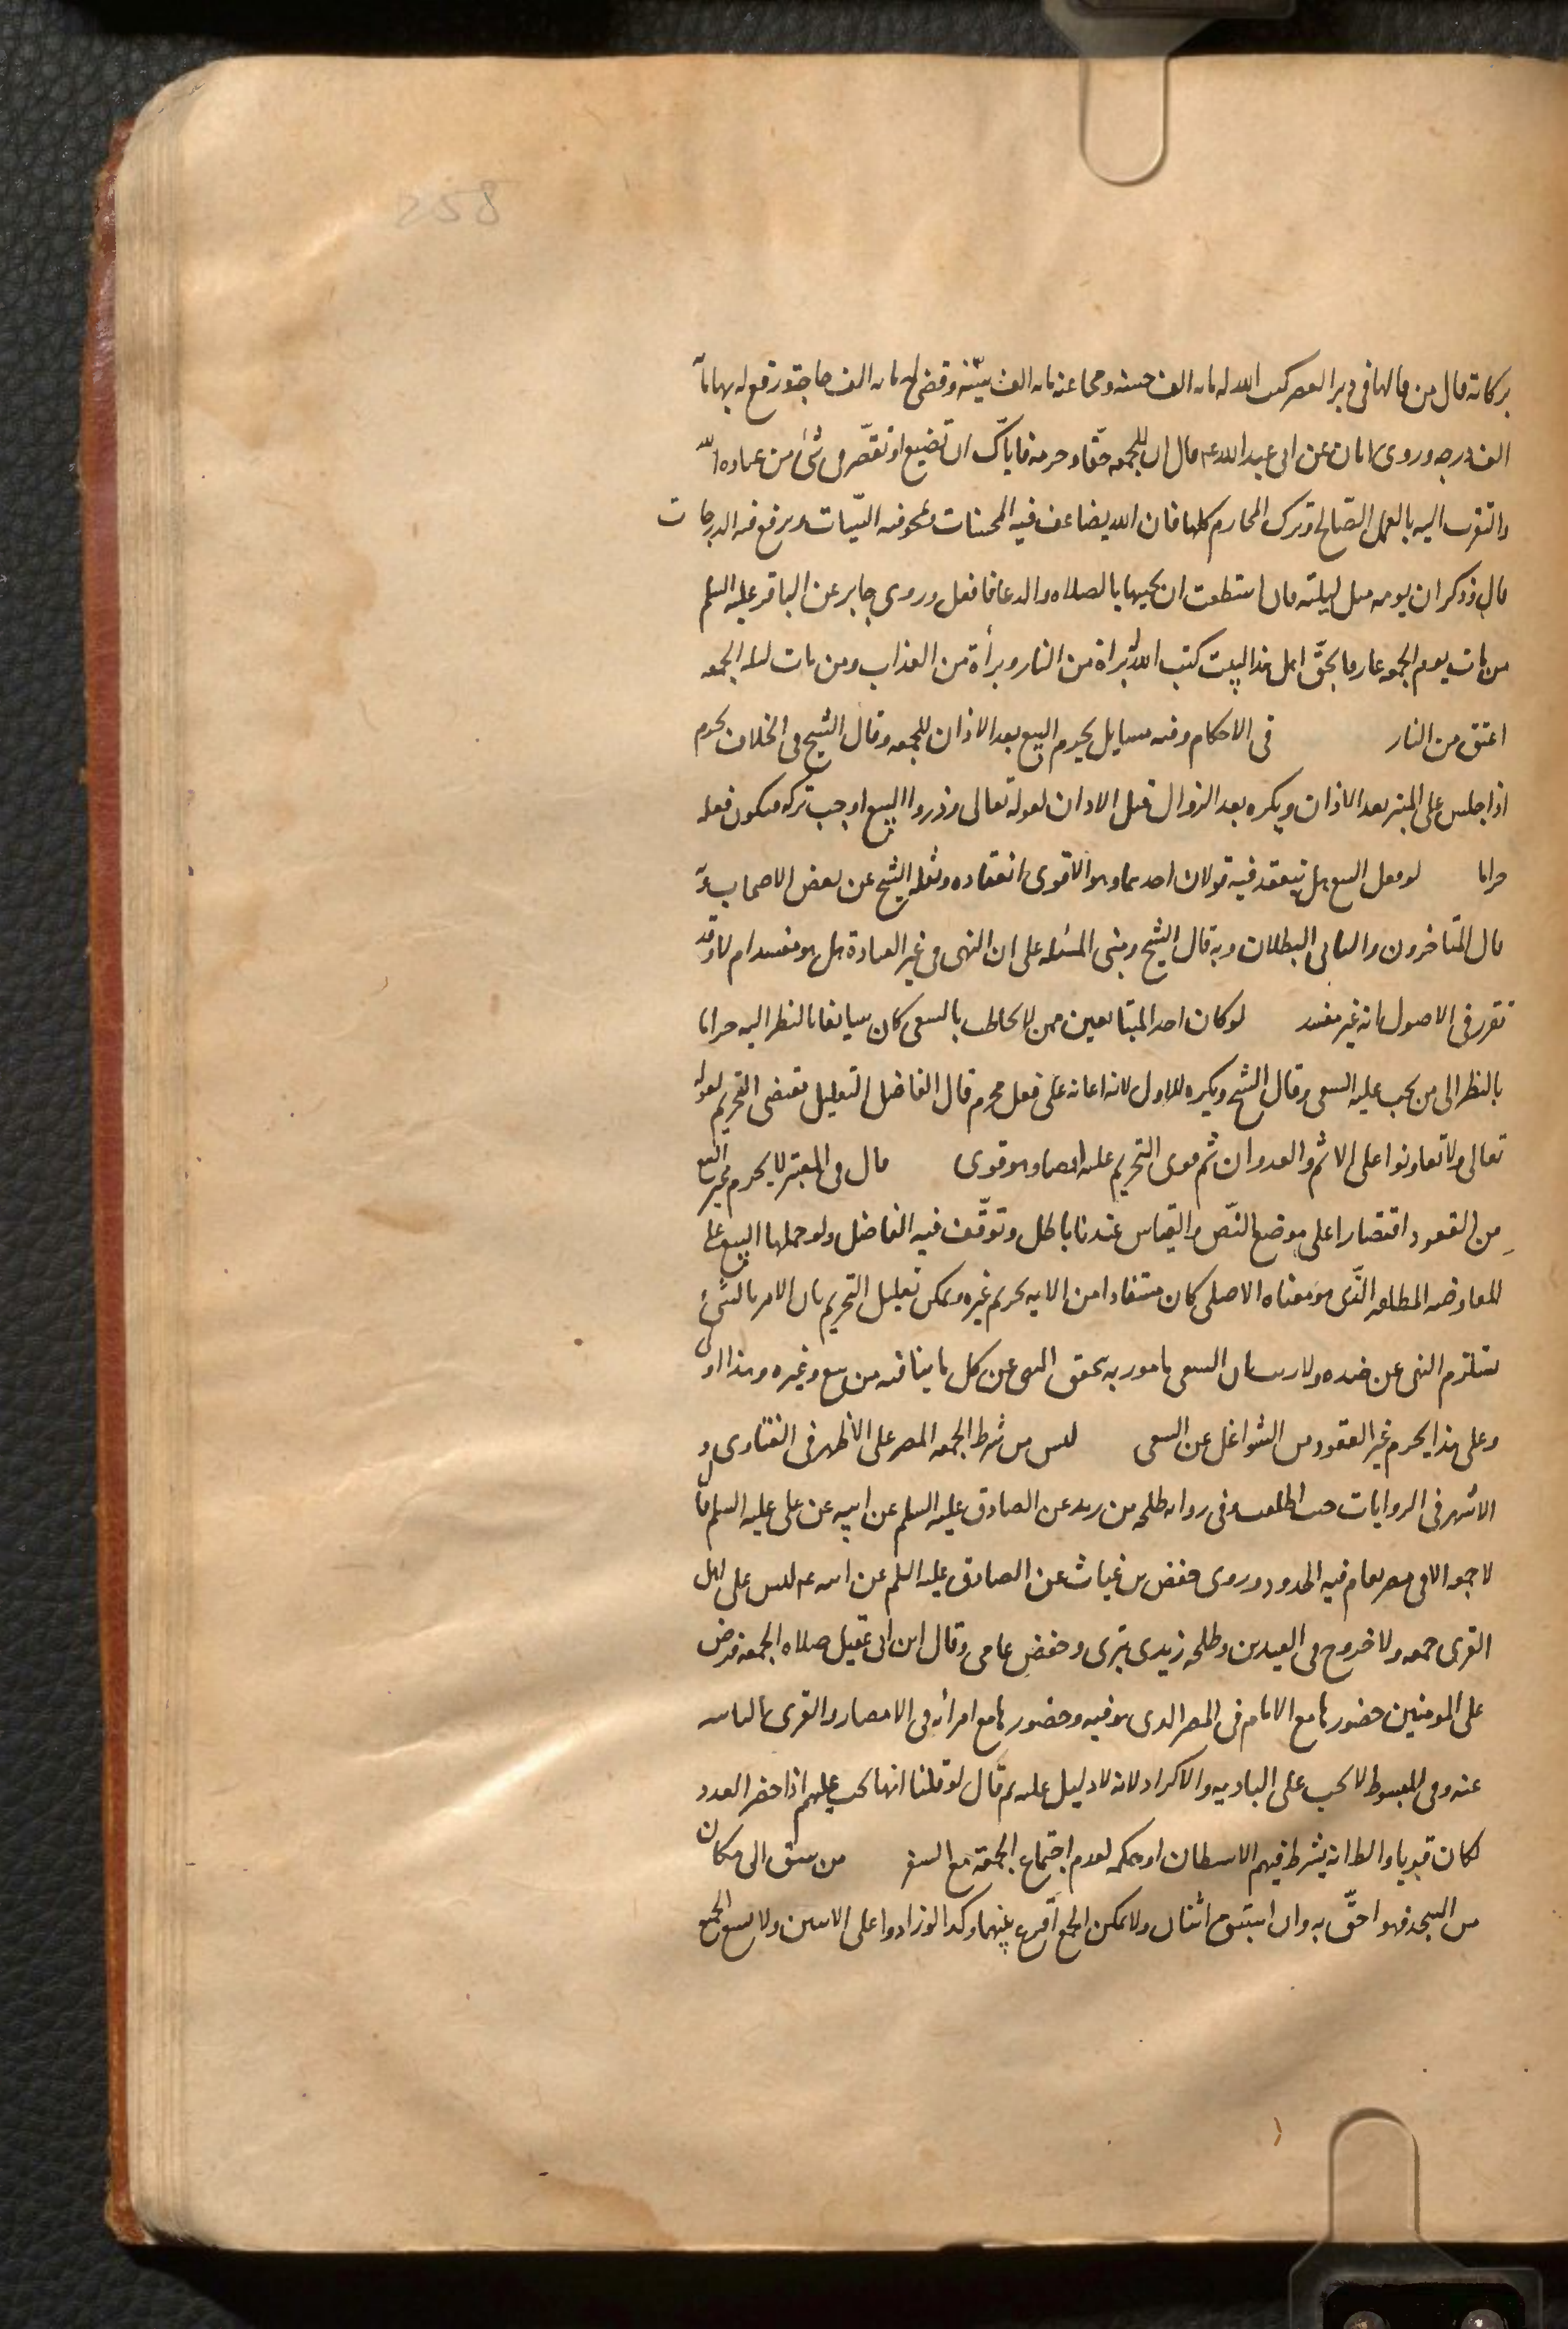 258
بركاته قال من قالها فى دبر العصر كتب الله له مائه الف حسنه ومحا عنه مائه الف سيّئه وقضى له مائه الف حاجة ورفع له بها مائه
الف درجه وروى ابان عن ابى عبد الله ع قال ان للجمعه حقّا وحرمة فاياك ان تضيع او تقصّر فى شئ من عباده الله
والتقرب اليه بالعمل الصّالح وترك المحارم كلها فان الله يضاعف فيه الحسنات ويمحو فيه السّيات ويرفع فيه الدرجات
قال وذكر ان يومه مثل ليلته فان استطعت ان تحييها بالصلاه والدعا فافعل وروى جابر عن الباقر عليه السلم
من مات يوم الجمعه عارفا بحقّ اهل هذا البيت كتب الله له براة من النار وبرأة من العذاب ومن مات ليله الجمعه
اعتق من النار في الاحكام وفيه مسايل يحرم البيع بعد الاذان للجمعه وقال الشيخ فى الخلاف يحرم
اذا جلس على المنبر بعد الاذان ويكره بعد الزوال قبل الاذان لقوله تعالى وذروا البيع اوجب تركه فيكون فعله
حراما لو فعل البيع هل ينعقد فيه قولان احدهما وهو الاقوى انعقاده ونقله الشيخ عن بعض الاصحاب وبه
قال المتاخرون والثانى البطلان وبه قال الشيخ ومبنى المسئله على ان النهى فى غير العبادة هل هو مفسد ام لا وقد
تقرر فى الاصول انه غير مفسد لو كان احد المتبايعين ممن لا يخاطب بالسعى كان سايغا بالنظر اليه حراما
بالنظر الى من يجب عليه السعى وقال الشيخ ويكره للاول لانه اعانة على فعل محرم قال الفاضل التعليل يقتضى التحريم لقوله
تعالى ولا تعاونوا على الاثم والعدوان ثم قوى التحريم عليه ايضا وهو قوى قال فى المعتبر لا يحرم غير البيع
من العقود اقتصارا على موضع النّص والقياس عندنا باطل وتوقّف فيه الفاضل ولو حملها البيع على
المعاوضه المطلقه الذّى هو معناه الاصلى كان مستفادا من الايه تحريم غيره ويمكن تعليل التحريم بان الامر بالشئ
يستلزم النهى عن ضده ولا ريب ان السعى مامور به يتحقق النهى عن كل ما ينافيه من بيع وغيره وهذا اولى
وعلى هذا يحرم غير العقود من الشواغل عن السعى ليس من شرط الجمعه المصر على الأظهر فى الفتاوى و
الاشهر فى الروايات حيث اطلقت وفى رواية طلحه بن زيد عن الصادق عليه السلم عن ابيه عن على عليه السلم قال
لا جمعه الا فى مصر يقام فيه الحدود وروى حفص بن غياث عن الصادق عليه السلم عن ابيه ع ليس على اهل
القرى جمعه ولا خروج فى العيدين وطلحه زيدى بترى وحفص عامى وقال ابن ابى عقيل صلاه الجمعه فرض
على المومنين حضورها مع الامام فى المصر الذى هو فيه وحضورها مع امرائه فى الامصار والقرى النائيه
عنه وفى المبسوط لا يجب على الباديه والاكراد لانه لا دليل عليه ثم قال لو قلنا انها تجب عليهم اذا حضر العدد
لكان قويا والظ انه يشترط فيهم الاستيطان او حكمه لعدم اجتماع الجمعة مع السفر من سبق الى مكان
من المسجد فهو احقّ به وان استبق اثنان ولا يمكن الجمع اقرع بينهما وكذا لو زادوا على الاثنين ولا يسع الجمع